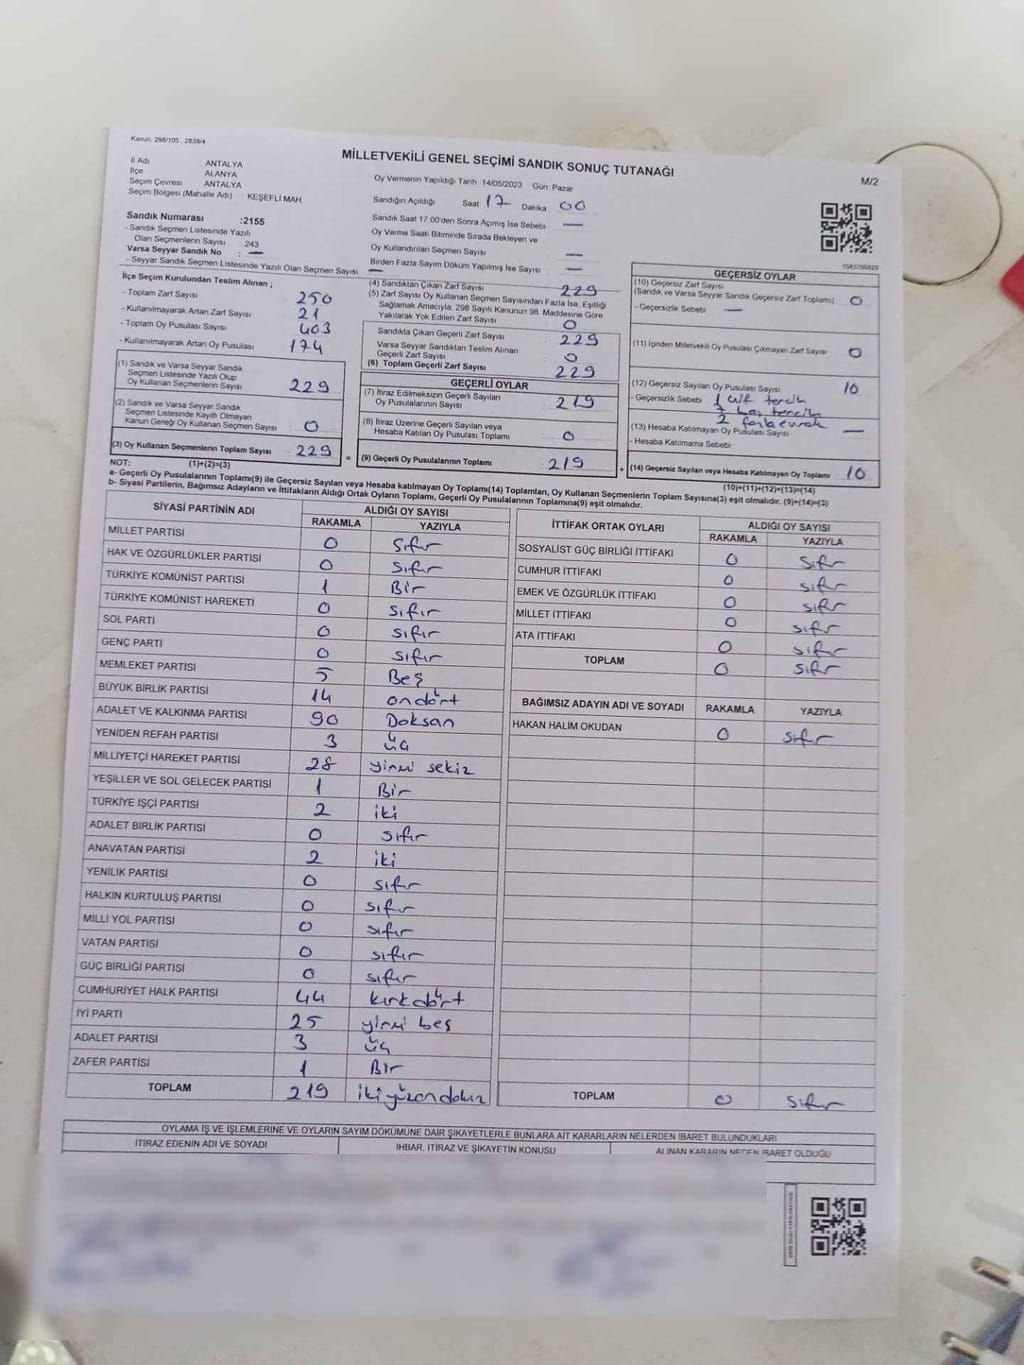 Kanun. 298/105 , 2839/4
MİLLETVEKİLİ GENEL SEÇİMİ SANDIK SONUÇ TUTANAĞI
M/2
İl Adı ANTALYA
İlçe ALANYA
Seçim Çevresi ANTALYA
Seçim Bölgesi (Mahalle Adı) KEŞEFLİ MAH.
Sandık Numarası :2155
- Sandık Seçmen Listesinde Yazılı
Olan Seçmenlerin Sayısı : 243
Varsa Seyyar Sandık No : —
- Seyyar Sandık Seçmen Listesinde Yazılı Olan Seçmen Sayısı : —
Oy Vermenin Yapıldığı Tarih :14/05/2023 Gün: Pazar
Sandığın Açıldığı Saat 17 Dakika 00
Sandık Saat 17.00'den Sonra Açılmış İse Sebebi : —
Oy Verme Saati Bitiminde Sırada Bekleyen ve
Oy Kullandırılan Seçmen Sayısı : —
Birden Fazla Sayım Döküm Yapılmış İse Sayısı : —
1583700829
İlçe Seçim Kurulundan Teslim Alınan ;
- Toplam Zarf Sayısı : 250
- Kullanılmayarak Artan Zarf Sayısı : 21
- Toplam Oy Pusulası Sayısı : 403
- Kullanılmayarak Artan Oy Pusulası : 174
(1) Sandık ve Varsa Seyyar Sandık
Seçmen Listesinde Yazılı Olup
Oy Kullanan Seçmenlerin Sayısı : 229
(2) Sandık ve Varsa Seyyar Sandık
Seçmen Listesinde Kayıtlı Olmayan
Kanun Gereği Oy Kullanan Seçmen Sayısı : 0
(3) Oy Kullanan Seçmenlerin Toplam Sayısı : 229
(1)+(2)=(3)
(4) Sandıktan Çıkan Zarf Sayısı : 229
(5) Zarf Sayısı Oy Kullanan Seçmen Sayısından Fazla İse, Eşitliği
Sağlamak Amacıyla, 298 Sayılı Kanunun 98. Maddesine Göre
Yakılarak Yok Edilen Zarf Sayısı : 0
Sandıkta Çıkan Geçerli Zarf Sayısı : 229
Varsa Seyyar Sandıktan Teslim Alınan
Geçerli Zarf Sayısı : 0
(6) Toplam Geçerli Zarf Sayısı : 229
GEÇERLİ OYLAR
(7) İtiraz Edilmeksizin Geçerli Sayılan
Oy Pusulalarının Sayısı : 219
(8) İtiraz Üzerine Geçerli Sayılan veya
Hesaba Katılan Oy Pusulası Toplamı : 0
= (9) Geçerli Oy Pusulalarının Toplamı : 219
GEÇERSİZ OYLAR
(10) Geçersiz Zarf Sayısı
(Sandık ve Varsa Seyyar Sandık Geçersiz Zarf Toplamı) : 0
- Geçersizlik Sebebi : —
(11) İçinden Milletvekili Oy Pusulası Çıkmayan Zarf Sayısı : 0
(12) Geçersiz Sayılan Oy Pusulası Sayısı : 10
- Geçersizlik Sebebi : 1 çift tercih
7 boş tercih
2 fazla evrak
(13) Hesaba Katılmayan Oy Pusulası Sayısı : —
- Hesaba Katılmama Sebebi :
+ (14) Geçersiz Sayılan veya Hesaba Katılmayan Oy Toplamı : 10
(10)+(11)+(12)+(13)=(14)
NOT:
a- Geçerli Oy Pusulalarının Toplamı(9) ile Geçersiz Sayılan veya Hesaba katılmayan Oy Toplamı(14) Toplamları, Oy Kullanan Seçmenlerin Toplam Sayısına(3) eşit olmalıdır. (9)+(14)=(3)
b- Siyasi Partilerin, Bağımsız Adayların ve İttifakların Aldığı Ortak Oyların Toplamı, Geçerli Oy Pusulalarının Toplamına(9) eşit olmalıdır.
SİYASİ PARTİNİN ADI ALDIĞI OY SAYISI
RAKAMLA YAZIYLA
MİLLET PARTİSİ 0 Sıfır
HAK VE ÖZGÜRLÜKLER PARTİSİ 0 Sıfır
TÜRKİYE KOMÜNİST PARTİSİ 1 Bir
TÜRKİYE KOMÜNİST HAREKETİ 0 sıfır
SOL PARTİ 0 sıfır
GENÇ PARTİ 0 sıfır
MEMLEKET PARTİSİ 5 Beş
BÜYÜK BİRLİK PARTİSİ 14 ondört
ADALET VE KALKINMA PARTİSİ 90 Doksan
YENİDEN REFAH PARTİSİ 3 üç
MİLLİYETÇİ HAREKET PARTİSİ 28 yirmi sekiz
YEŞİLLER VE SOL GELECEK PARTİSİ 1 Bir
TÜRKİYE İŞÇİ PARTİSİ 2 iki
ADALET BİRLİK PARTİSİ 0 sıfır
ANAVATAN PARTİSİ 2 iki
YENİLİK PARTİSİ 0 sıfır
HALKIN KURTULUŞ PARTİSİ 0 sıfır
MİLLİ YOL PARTİSİ 0 sıfır
VATAN PARTİSİ 0 sıfır
GÜÇ BİRLİĞİ PARTİSİ 0 sıfır
CUMHURİYET HALK PARTİSİ 44 kırkdört
İYİ PARTİ 25 yirmi beş
ADALET PARTİSİ 3 üç
ZAFER PARTİSİ 1 Bir
TOPLAM 219 ikiyüzondokuz
İTTİFAK ORTAK OYLARI ALDIĞI OY SAYISI
RAKAMLA YAZIYLA
SOSYALİST GÜÇ BİRLİĞİ İTTİFAKI 0 sıfır
CUMHUR İTTİFAKI 0 sıfır
EMEK VE ÖZGÜRLÜK İTTİFAKI 0 sıfır
MİLLET İTTİFAKI 0 sıfır
ATA İTTİFAKI 0 sıfır
TOPLAM 0 sıfır
BAĞIMSIZ ADAYIN ADI VE SOYADI RAKAMLA YAZIYLA
HAKAN HALİM OKUDAN 0 sıfır
TOPLAM 0 sıfır
OYLAMA İŞ VE İŞLEMLERİNE VE OYLARIN SAYIM DÖKÜMÜNE DAİR ŞİKAYETLERLE BUNLARA AİT KARARLARIN NELERDEN İBARET BULUNDUKLARI
İTİRAZ EDENİN ADI VE SOYADI İHBAR, İTİRAZ VE ŞİKAYETİN KONUSU ALINAN KARARIN NEDEN İBARET OLDUĞU